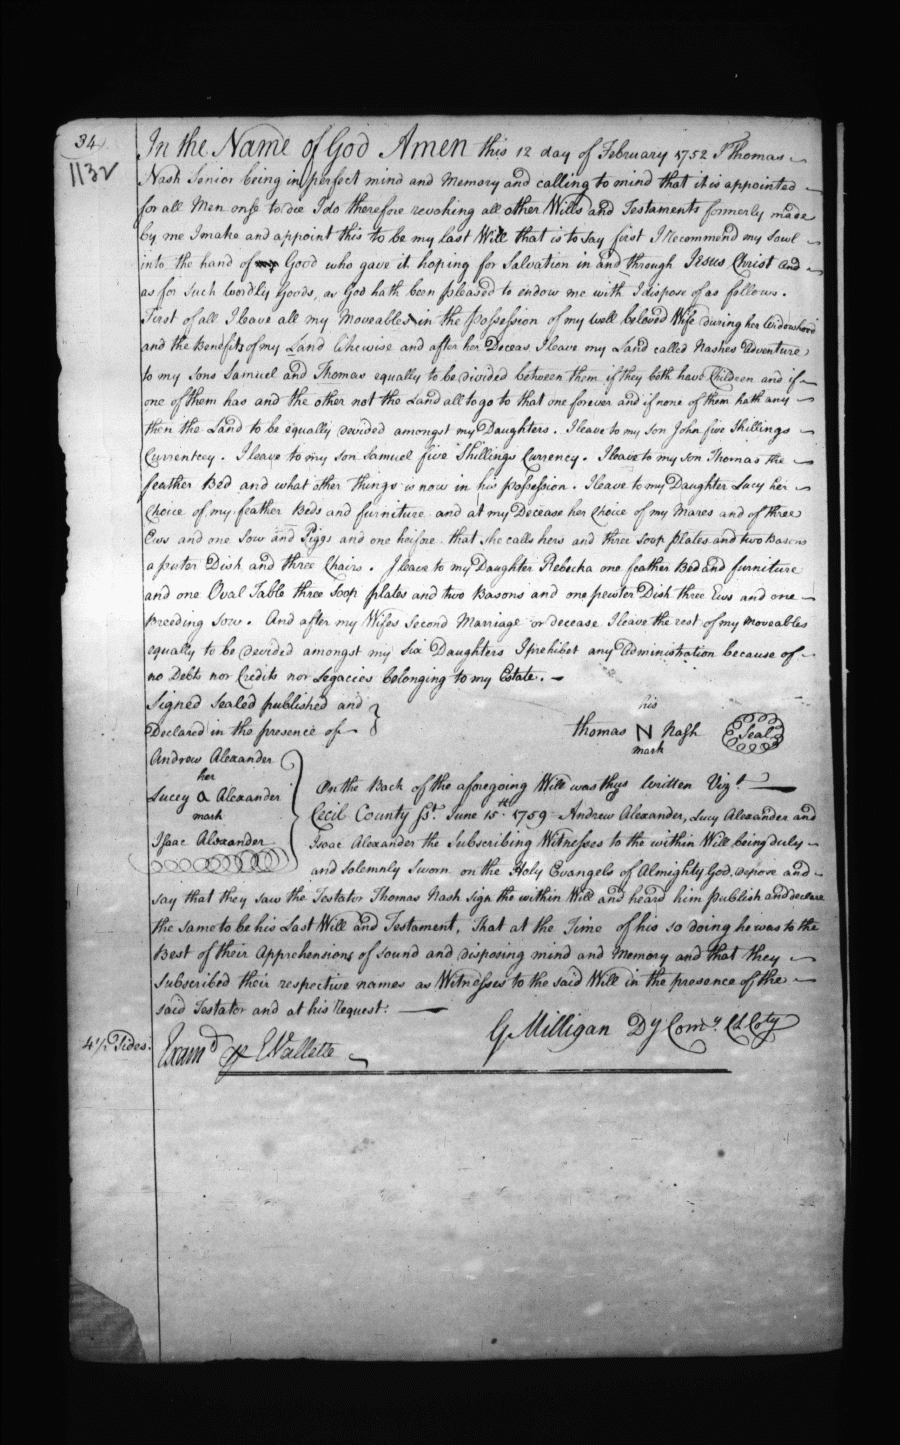 34
1132
In the Name of God Amen this 12 day of February 1752 I Thomas
Nash Senior being in perfect mind and Memory and calling to mind that it is appointed
for all Men onse to die I do therefore revoking all other Wills and Testaments formerly made
by me I make and appoint this to be my last Will that is to say first I Recommend my sowl
into the hand of Good who gave it hoping for Salvation in and through Jesus Christ and
as for such wordly Goods, as God hath been pleased to endow me with I dispose of as follows.
First of all I leave all my Moveables in the possession of my well beloved Wife during her Widowhood
and the Benefits of my Land likewise and after her Deceas I leave my Land called Nashes Adventure
to my sons Samuel and Thomas equally to be divided between them if they both have Children and if
one of them has and the other not the Land all to go to that one forever and if none of them hath any
then the Land to be equally devided amongst my Daughters. I leave to my son John five Shillings
Currentcey. I leave to my son Samuel five Shillings Currency. I leave to my son Thomas the
feather Bed and what other things is now in his possession. I leave to my Daughter Lucy her
Choice of my feather Beds and furniture and at my Decease her Choice of my Mares and of three
Ews and one Sow and Piggs and one heifore that she calls hers and three Soop plates and two Basons
a puter Dish and three Chairs. I leave to my Daughter Rebecka one feather Bed and furniture
and one Oval Table three Soop plates and two Basons and one pewter Dish three Ews and one
Breeding Sow. And after my Wifes Second Marriage or decease I leave the rest of my moveables
equally to be devided amongst my Six Daughters I prohibet any Administration because of
no Debts nor Credits nor Legacies belonging to my Estate.
Signed Sealed published and
Declared in the presence of
his
thomas N Nash Seal
mark
Andrew Alexander
her
Lucey a Alexander
mark
Isaac Alexander
On the Back of the aforegoing Will was thus written Vizt
Cecil County Ss. June 15th 1759 Andrew Alexander, Lucy Alexander and
Isaac Alexander the Subscribing Witnesses to the within Will being duly
and solemnly Sworn on the Holy Evangels of Almighty God, depose and
say that they saw the Testator Thomas Nash sign the within Will and heard him publish and declare
the same to be his Last Will and Testament, That at the Time of his so doing he was to the
Best of their Apprehensions of sound and disposing mind and Memory and that they
Subscribed their respective names as Witnesses to the said Will in the presence of the
said Testator and at his Request.
G Milligan Dy Comy Cl Coty
4½ Sides.
Examd Vallette